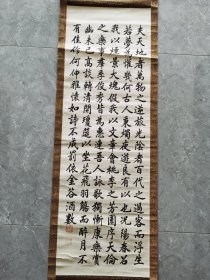 夫天地者萬物之逆旅光陰者百代之過客而浮生
若夢為懽幾何古人秉燭夜遊良有以也況陽春召
我以煙景大塊假我以文章會桃李之芳園序天倫
之樂事羣季俊秀皆為惠連吾人詠歌獨慚康樂賞
幽未已高談轉清開瓊筵以坐花飛羽觴而醉月不
有佳作何伸雅懷如詩不成罰依金谷酒數